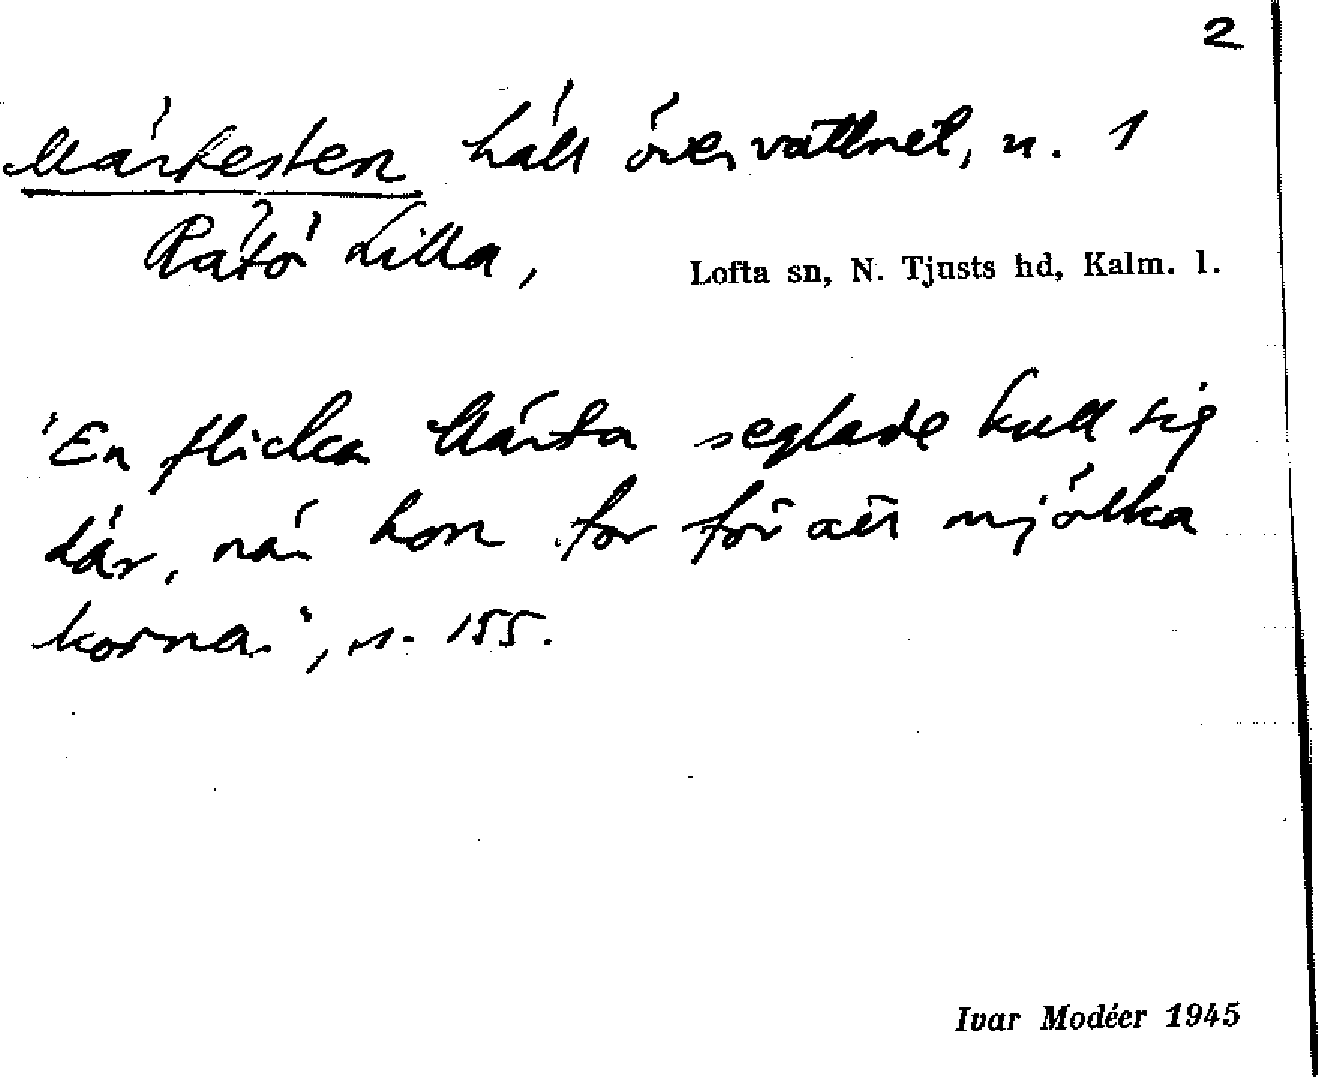 2
Märtesten häll över vattnet, n. 1
Råtö Lilla,
Lofta sn, N. Tjusts hd, Kalm. l.
"En flicka Märta seglade kull sig
där, när hon for för att mjölka
korna", s. 155.
Ivar Modéer 1945